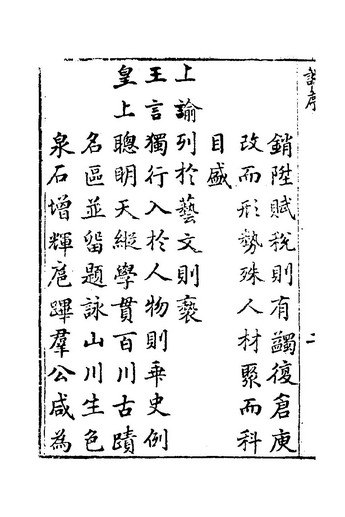 銷陞賦稅則有蠲復倉庾
改而形勢殊人材聚而科
目盛
上諭列於藝文則褻
王言獨行入於人物則乖史例
皇上聰明天縱學貫百川古蹟
名區並留題詠山川生色
泉石增輝扈蹕羣公咸為